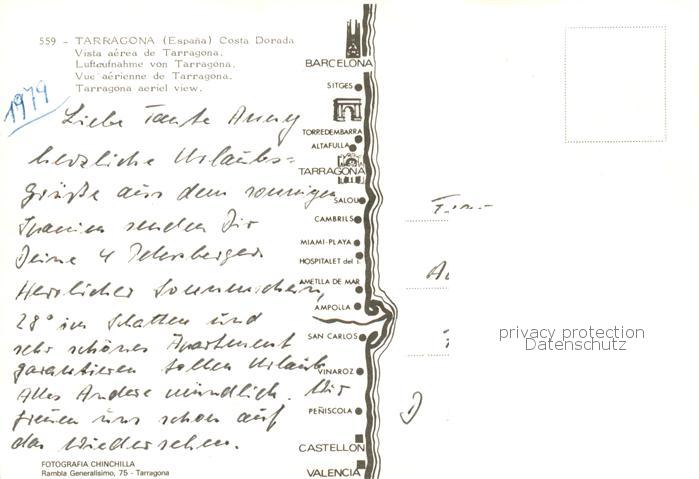 559 - TARRAGONA (España) Costa Dorada
Vista aérea de Tarragona.
Luftaufnahme von Tarragona.
Vue aérienne de Tarragona.
Tarragona aeriel view.
1979
Liebe Tante Anny
herzliche Urlaubs=
grüße aus dem sonnigen
Spanien senden Dir
Deine 4 Petersberger
Herrlicher Sonnenschein,
28° im Schatten und
sehr schönes Apartment
garantieren tollen Urlaub
Alles Andere mündlich. Wir
freuen uns schon auf
das Wiedersehen.
FOTOGRAFIA CHINCHILLA
Rambla Generalísimo, 75 - Tarragona
BARCELONA
SITGES
TORREDEMBARRA
ALTAFULLA
TARRAGONA
SALOU
CAMBRILS
MIAMI-PLAYA
HOSPITALET del I.
AMETLLA DE MAR
AMPOLLA
SAN CARLOS
VINAROZ
PEÑISCOLA
CASTELLON
VALENCIA
privacy protection
Datenschutz
D